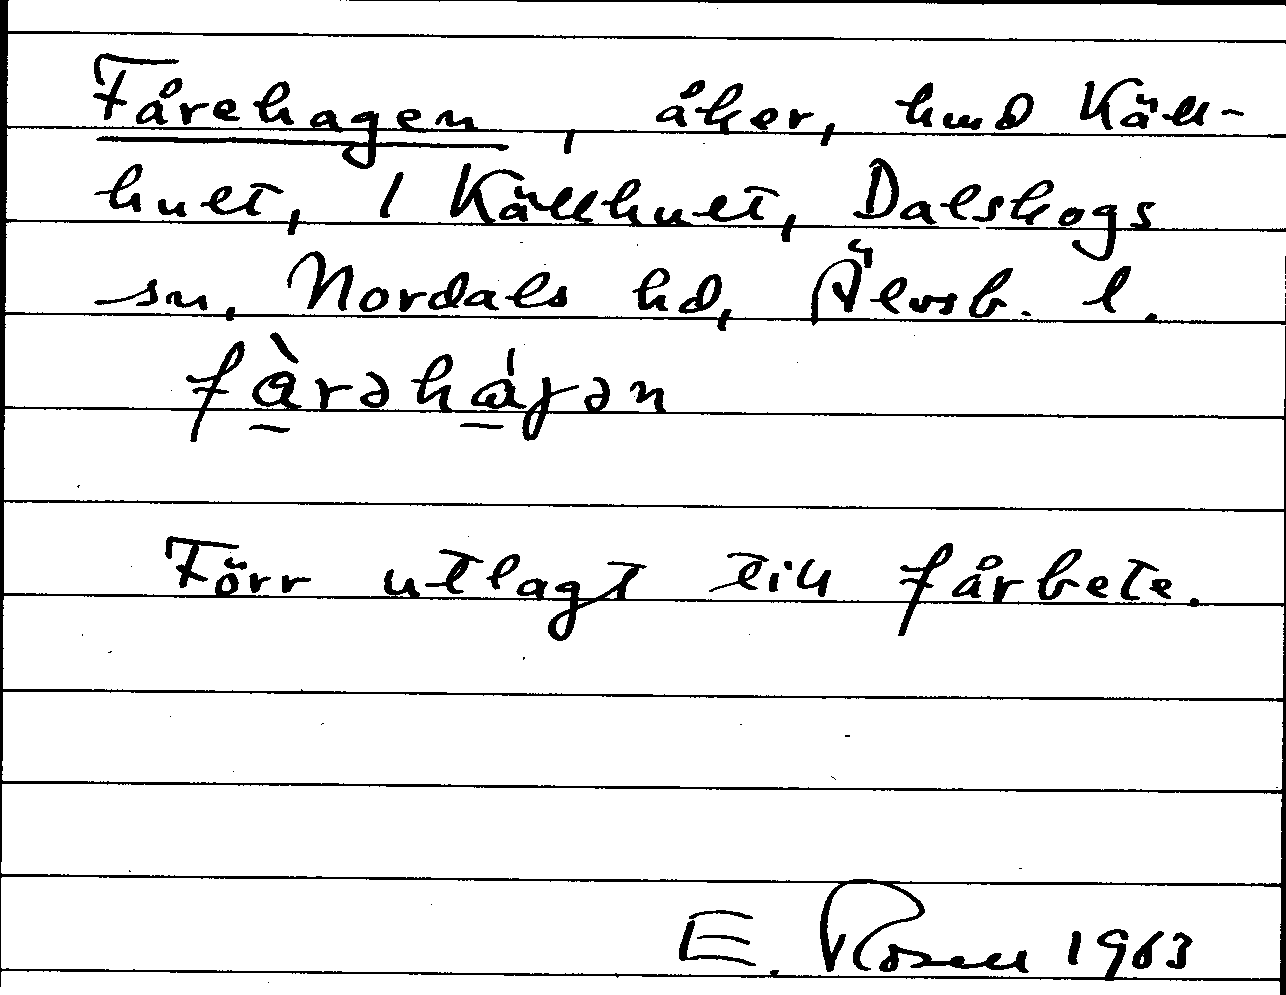 Fårehagen, åker, hmd Käll-
hult, 1 Källhult, Dalskogs
sn, Nordals hd, Älvsb. l.
fàrəhágən
Förr utlagt till fårbete.
E. Rosell 1963